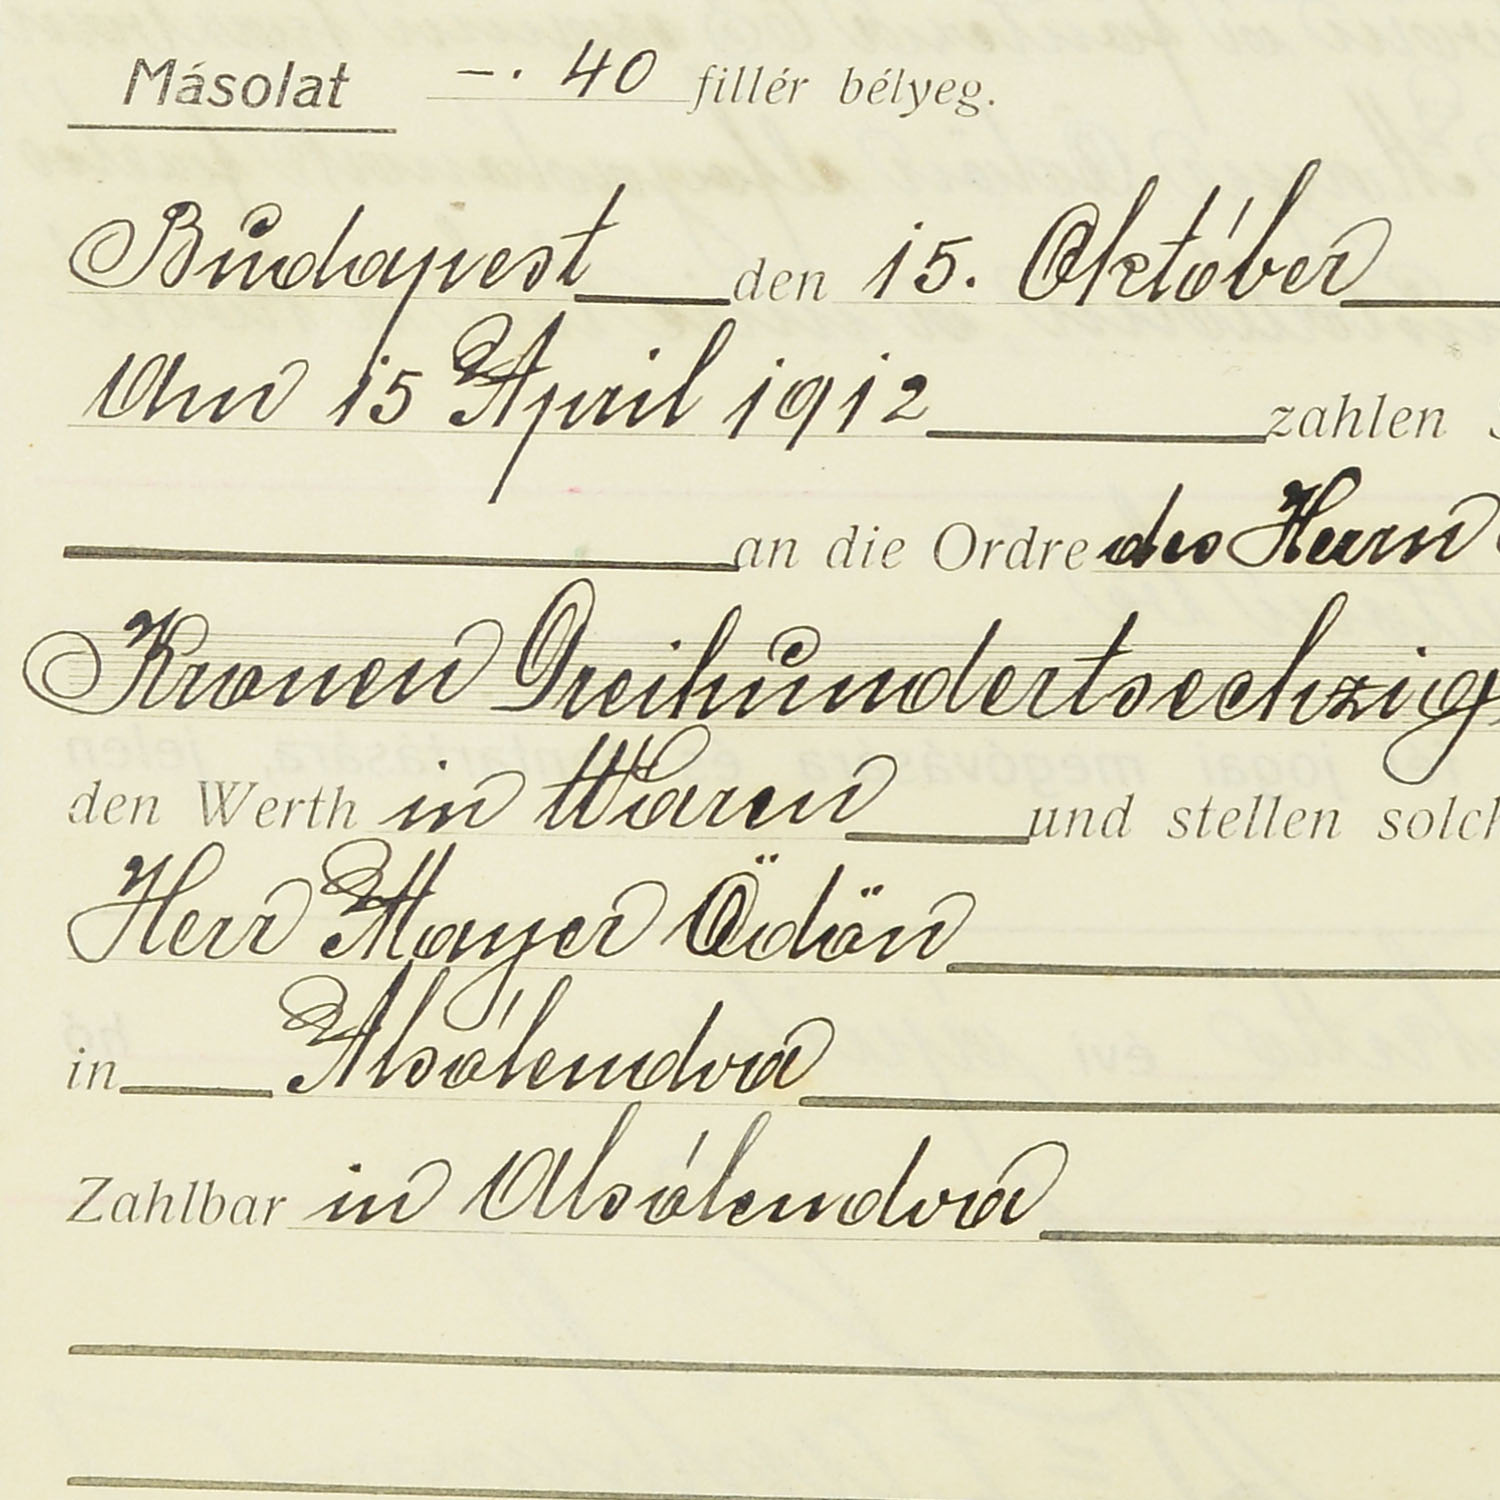 Másolat —. 40 fillér bélyeg.
Budapest den 15. Október
Am 15 April 1912 zahlen
an die Ordre des Herrn
Kronen Dreihundertsechzig
den Werth in Waren und stellen solch
Herr Mayer Ödön
in Alsólendva
Zahlbar in Alsólendva